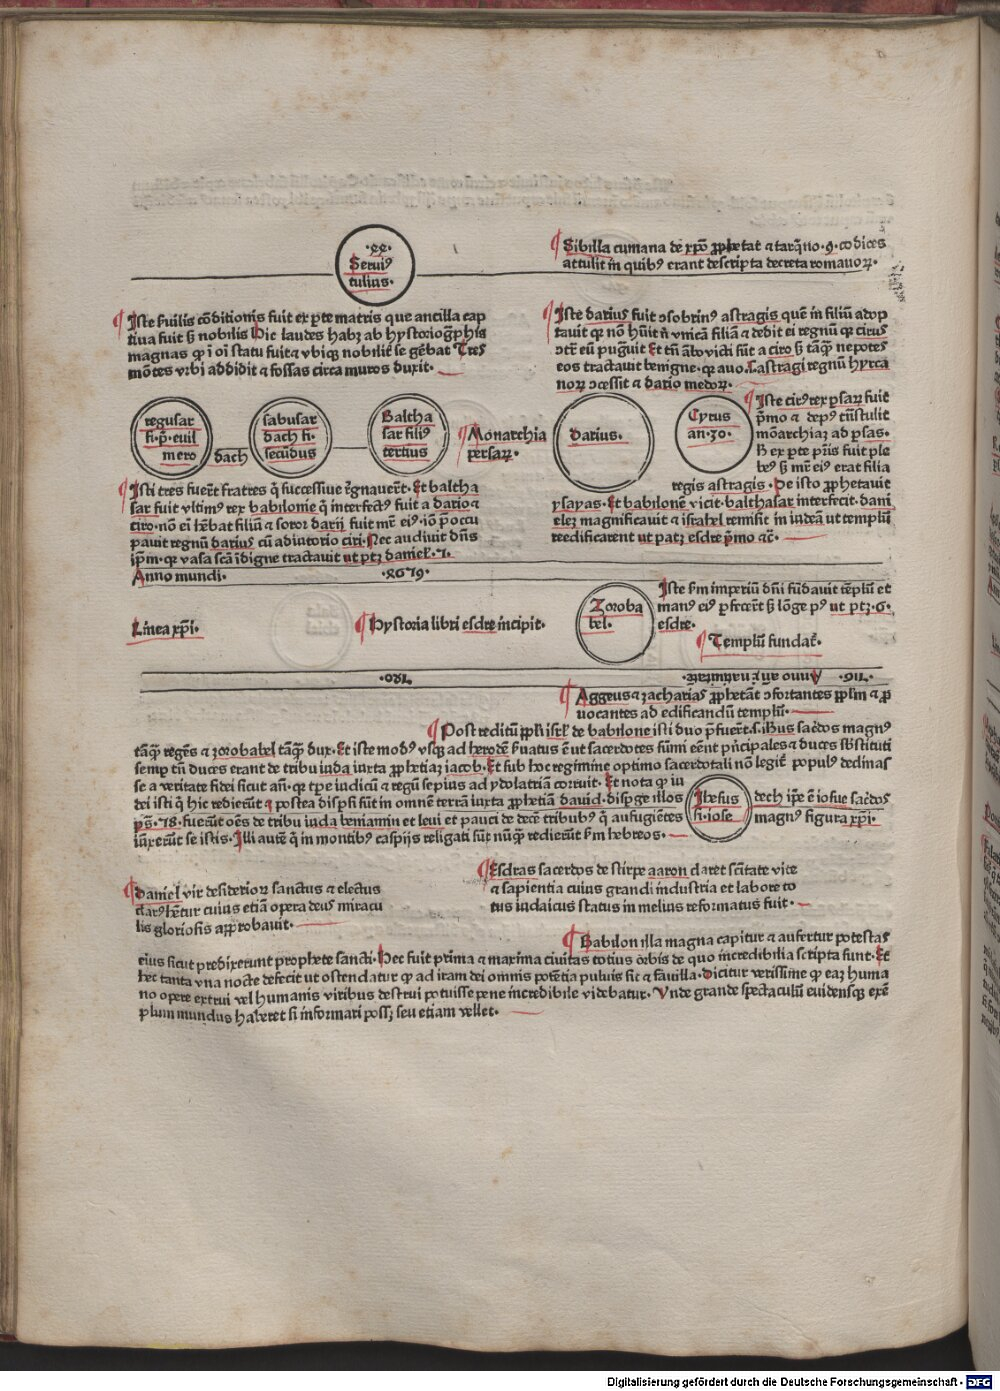 ·44·
Serui⁹
tulius·
¶ Sibilla cumana de xp̄o ꝓphetat ⁊ tarq̄no ·9· codices
attulit in quib⁹ erant descripta decreta romanoꝝ·
¶ Iste ẜuilis cōditionis fuit ex ꝑte matris que ancilla cap
tiua fuit ẜ nobilis Hic laudes habꝫ ab hystoriog̃phis
magnas ꝙ ī oī statu fuit ⁊ vbiqꝫ nobilit̄ se ge᷒bat Tres
mōtes vrbi addidit ⁊ fossas circa muros duxit·
¶ Iste darius fuit ↄsobrin⁹ astragis quē in filiū adop
tauit qꝫ nō hūit n̄ vnicā filiā ⁊ dedit ei regnū qꝫ cirus
ↄt̄ eū pug̃uit Et tn̄ ābo victi fūt a ciro ẜ tāqꝫ nepotes
eos tractauit benigne ·qꝫ auo· ſ· astragi regnū hyrca
noꝝ ↄcessit ⁊ dario medoꝝ·
regusar
fi· p̄· euil
mero
dach
sabusar
dach fi·
secūdus
Baltha
sar fili⁹
tertius
¶ Monarchia
persaꝝ·
darius·
Cyrus
an·30·
¶ Iste cir⁹ rex ꝑsaꝝ fuit
p̄mo ⁊ dep⁹ tn̄stulit
mōarchiaꝫ ad ꝑsas·
H̄ ex ꝑte pr̄is fuit ple
be⁹ ẜ mr̄ ei⁹ erat filia
regis astragis · De isto ꝓphetauit
ysayas· Et babilonē vicit· balthasar interfecit· dani
eleꝫ magnificauit ⁊ israhel remisit in iudeā ut templū
reedificarent ut patꝫ esdre p̄mo ⁊c̄·
¶ Isti tres fuer̄t fratres q̄ successiue r̄gnauer̄t· Et baltha
sar fuit vltim⁹ rex babilonie q̄ interfect⁹ fuit a dario ⁊
ciro· nō ei᷒ hēbat filiū ⁊ soror darii fuit mr̄ ei⁹· iō p̄occu
pauit regnū darius cū adiutorio ciri· Nec audiuit dn̄s
ip̄m· qꝫ vasa scā īdigne tractauit ut ptꝫ daniel̄ ·7·
Anno mundi· ·4679·
Linea xp̄i·
¶ Hystoria libri esdre incipit·
Zoroba
bel·
Iste ẜm imperiū dn̄i fūdauit tēplū et
man⁹ ei⁹ ꝑfecer̄t ẜ lōge p⁹ ut ptꝫ ·6·
esdre·
¶ Templū fundat᷒·
·720· Anno aꝶ natiuitatē· ·911·
¶ Aggeus ⁊ zacharias ꝓphetāt ↄfortantes pplm̄ ⁊ ꝓ
uocantes ad edificandū templū·
¶ Post reditū ppl̄i isrl̄ de babilone isti duo p̄fuer̄t· ſ· iħus sac̄dos magn⁹
tāqꝫ reges ⁊ zorobabel tāqꝫ dux· Et iste mod⁹ vsqꝫ ad herodē ẜuatus ē ut sacerdotes sūmi eēnt pn̄cipales ⁊ duces sb̄stituti
semꝑ tn̄ duces erant de tribu iuda iuxta ꝓphetiaꝫ iacob· Et sub hoc regimine optimo sacerdotali nō legit᷒ populus declinas
se a veritate fidei sicut an̄· qꝫ tꝑe iudicū ⁊ regū sepius ad ydolatriā corruit· Et nota ꝙ iu
dei isti q̄ hic redierūt ⁊ postea disꝑsi sūt in omnē terrā iuxta ꝓphetiā dauid· disꝑge illos
ps̄· 78· fuerūt oēs de tribu iuda beniamin et leui et pauci de decē tribub⁹ q̄ aufugiētes
iūxerūt se istis· Illi autē q̄ in montib⁹ caspijs religati sūt nūqꝫ redierūt ẜm hebreos·
Ihesus
fi· iose
dech ip̄e ē iosue sac̄dos
magn⁹ figura xp̄i·
¶ Esdras sacerdos de stirpe aaron claret scītate vite
⁊ sapientia cuius grandi industria et labore to
tus iudaicus status in melius reformatus fuit·
¶ Daniel vir desiderioꝝ sanctus ⁊ electus
clar⁹ hētur cuius etiā opera deus miracu
lis gloriosis apꝓbauit·
¶ Babilon illa magna capitur ⁊ aufertur potestas
eius sicut predixerunt prophete sancti· Hec fuit prima ⁊ maxima ciuitas totius orbis de quo incredibilia scripta sunt· Et
hec tanta vna nocte defecit ut ostendatur ꝙ ad iram dei omnis potētia puluis sic ⁊ fauilla· Dicitur verissime ꝙ eaꝫ huma
no opere extrui vel humanis viribus destrui potuisse pene incredibile videbatur· Vnde grande spectaculū euidensqꝫ exē
plum mundus haberet si informari possꝫ seu etiam vellet·
Digitalisierung gefördert durch die Deutsche Forschungsgemeinschaft - DFG